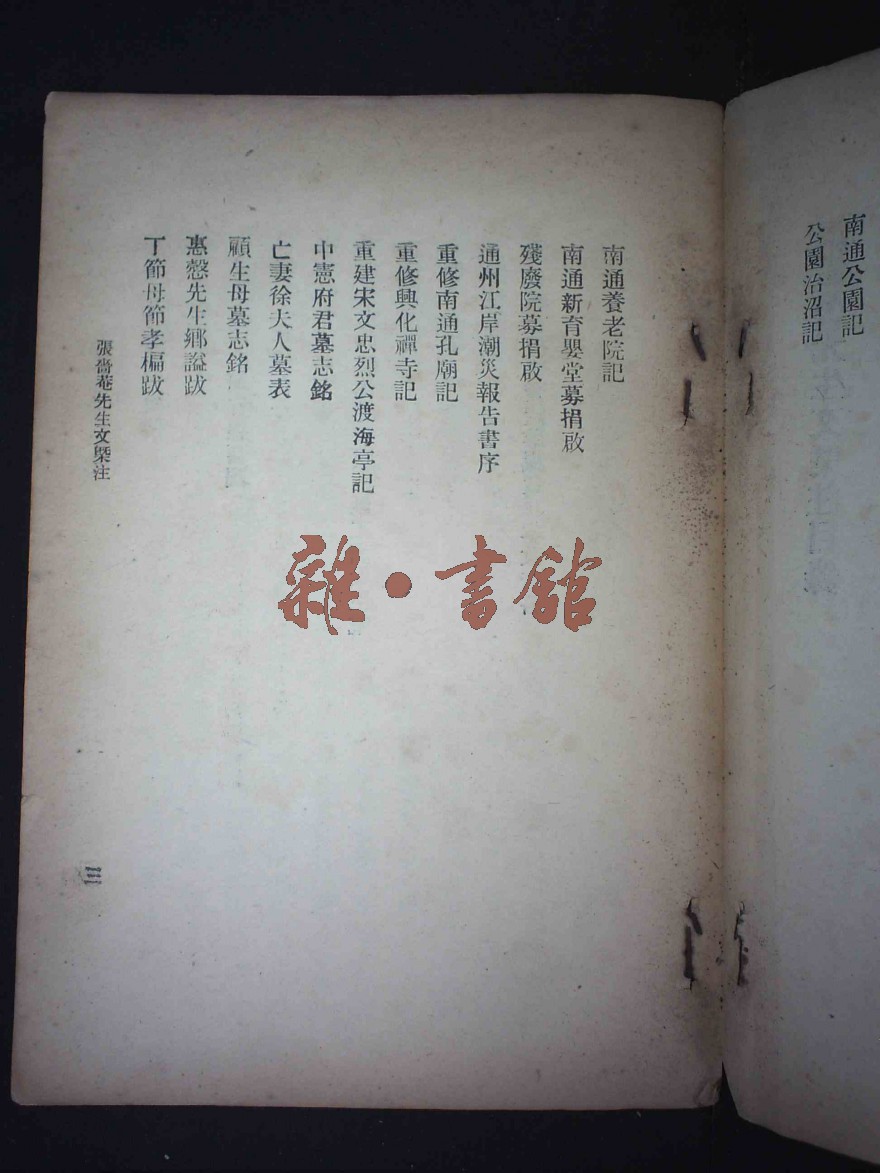 南通公園記
公園治沼記
南通養老院記
南通新育嬰堂募捐啟
殘廢院募捐啟
通州江岸潮災報告書序
重修南通孔廟記
重修興化禪寺記
重建宋文忠烈公渡海亭記
中憲府君墓志銘
亡妻徐夫人墓表
顧生母墓志銘
惠愨先生鄉謚跋
丁節母節孝楄跋
張嗇菴先生文槩注
三
雜·書館